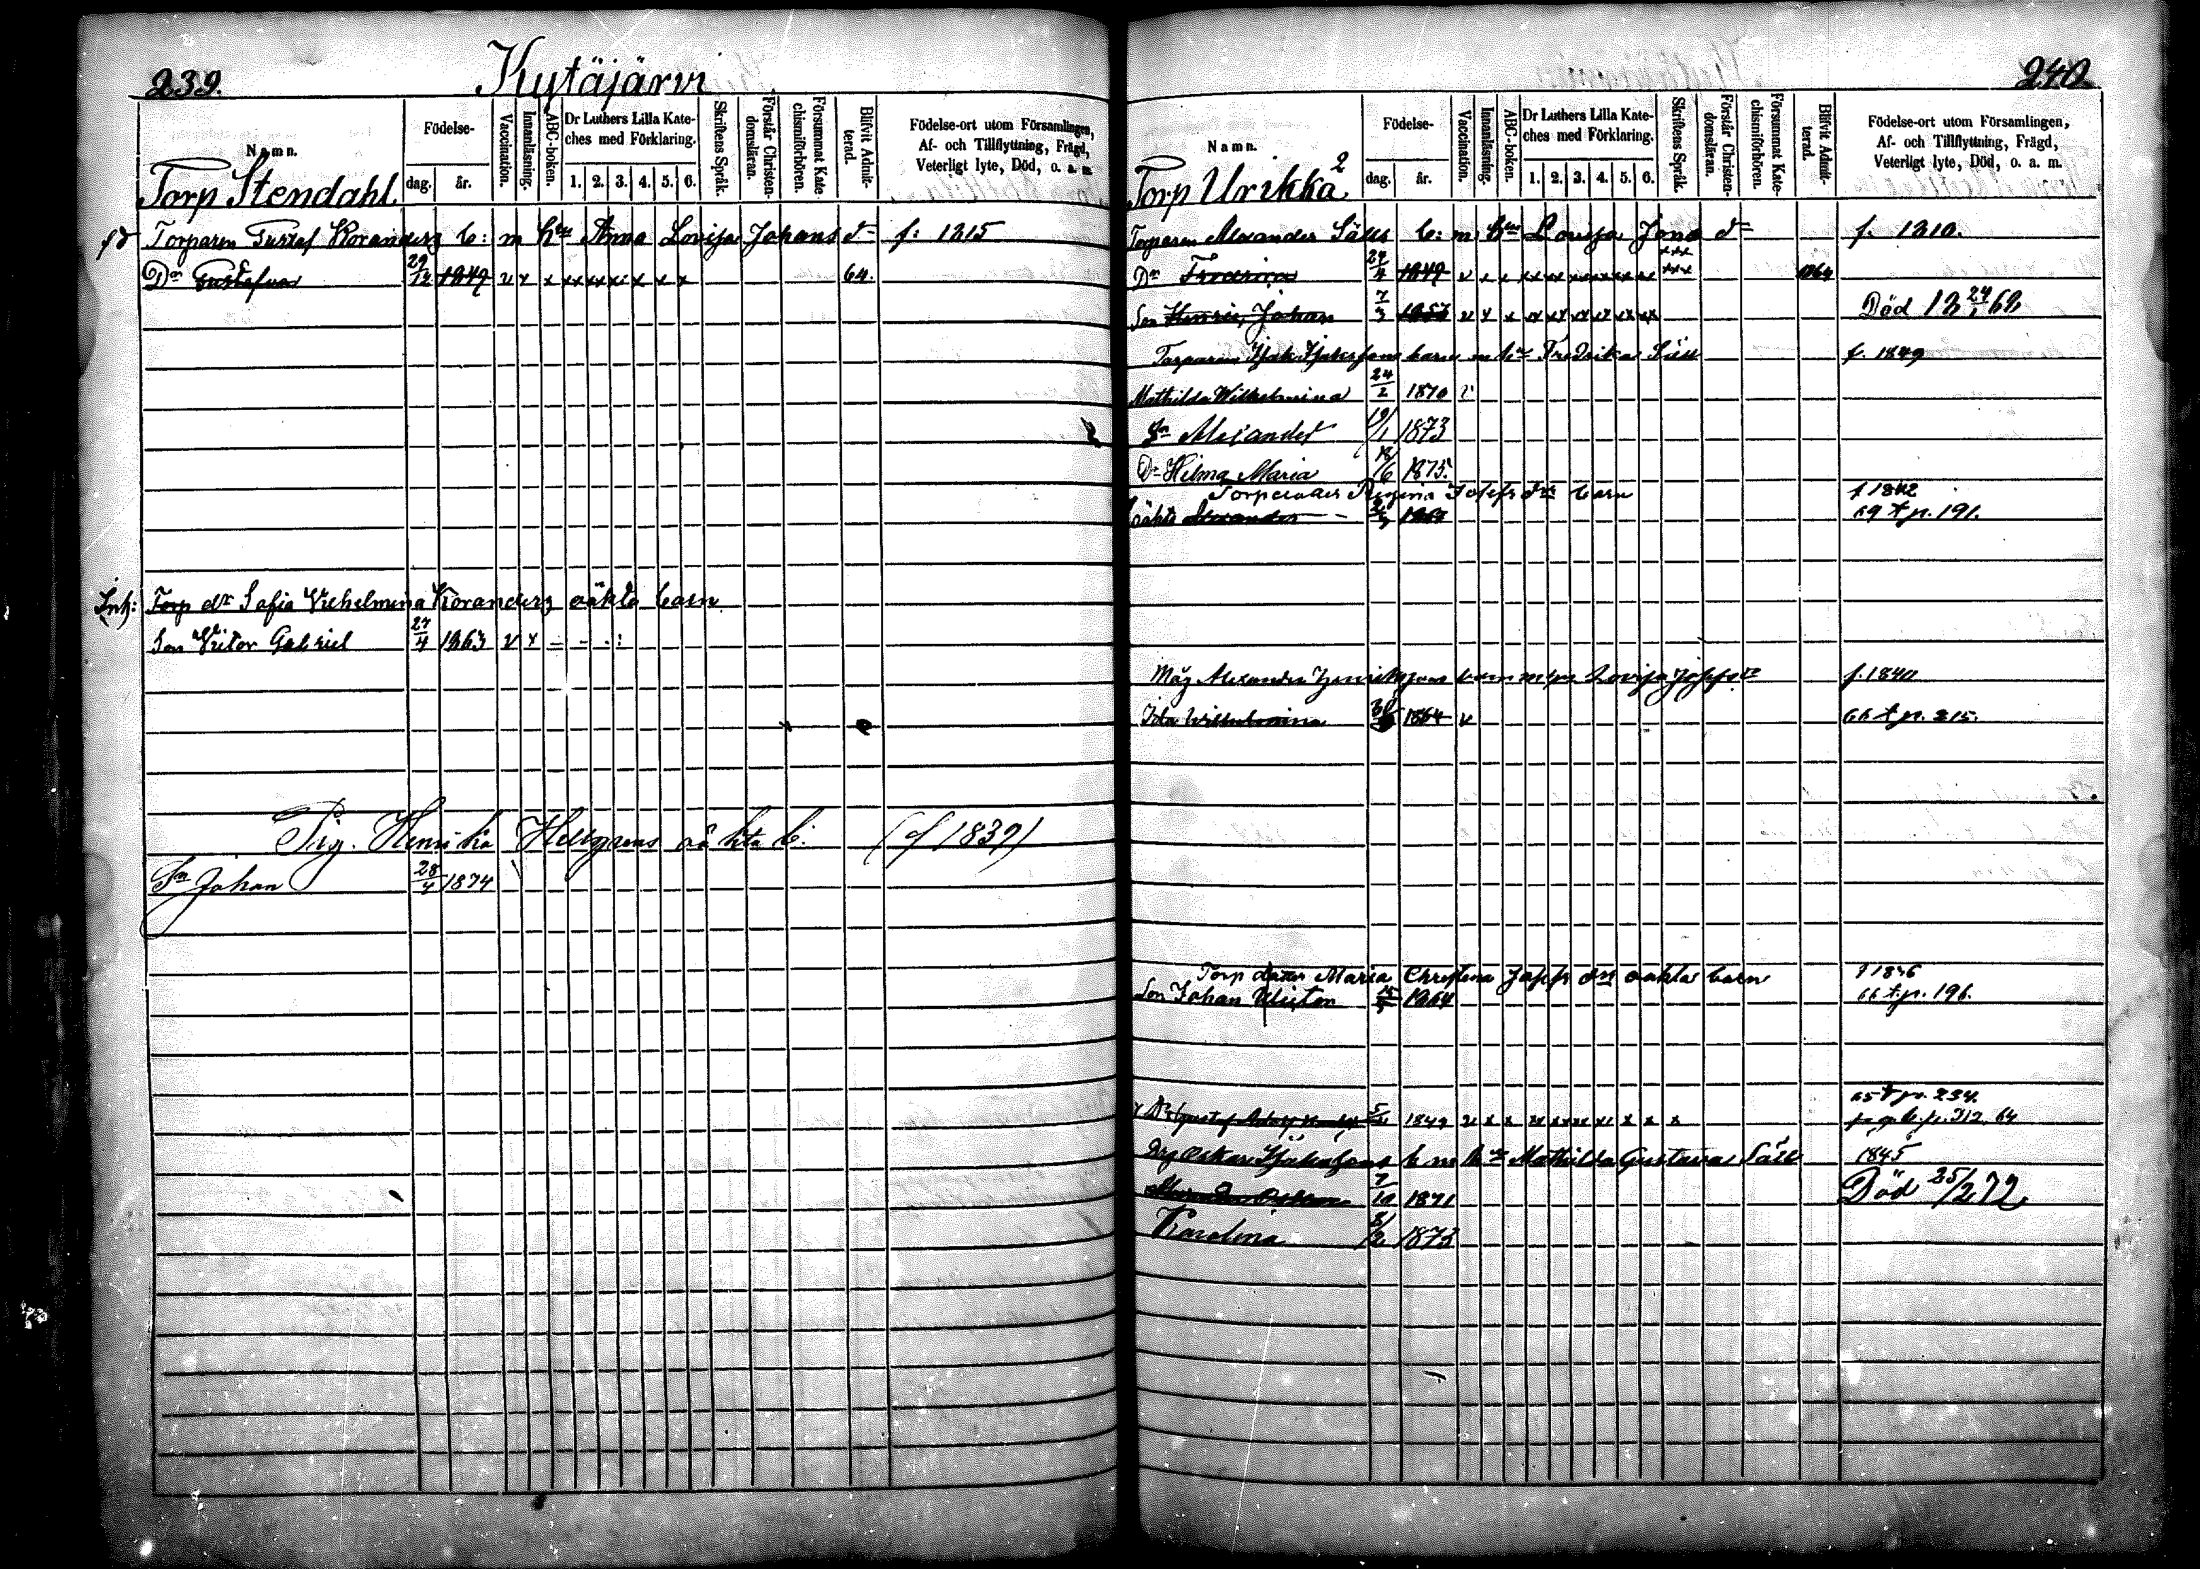 239.
Kytäjärvi
Namn.
Födelse-
dag.
år.
Vaccination.
Innanläsning.
ABC-boken.
Dr Luthers Lilla Kate-
ches med Förklaring.
1. 2. 3. 4. 5. 6.
Skriftens Språk.
Förstår Christen-
domsläran.
Försummat Kate-
chismiförhören.
Blifvit Admit-
terad.
Födelse-ort utom Församlingen,
Af- och Tillflyttning, Frägd,
Veterligt lyte, Död, o. a. m.
Torp Stendahl
fd Torparen Gustaf Koranders b: m hu Anna Lovisa Johans dr f. 1815
Dr Gustafva 29/12 1847 v x x xx xx x x x x 64.
Inh: Torp dr Sofia Vilhelmina Koranders oäkta barn
Son Victor Gabriel 27/4 1863 v x
Pig. Henrika Hellgrens oäkta b. (f 1839)
Sn Johan 28/4 1874
240.
Namn.
Födelse-
dag.
år.
Vaccination.
Innanläsning.
ABC-boken.
Dr Luthers Lilla Kate-
ches med Förklaring.
1. 2. 3. 4. 5. 6.
Skriftens Språk.
Förstår Christen-
domsläran.
Försummat Kate-
chismiförhören.
Blifvit Admit-
terad.
Födelse-ort utom Församlingen,
Af- och Tillflyttning, Frägd,
Veterligt lyte, Död, o. a. m.
Torp Urikka 2
Torparen Alexander Säks b: m hu Lovisa Jonæ dr f. 1810.
Dr Fredrica 1849 v x x xx xx 1864
Son Henric Johan 7/3 1853 v x x Död 18 24/1 68
Torparen Isak Isakssons barn m hu Fredrika Säk f. 1849
Mathilda Wilhelmina 24/2 1870 v
Sn Alexander 19/1 1873
Dr Hilma Maria 18/6 1875.
Torpdotter Regina Josefs drs barn f 1842
oäkta Alexander 69 t p. 191.
Måg Alexander Henrikssons barn m hu Lovisa Josefs dr f. 1840
Ida Wilhelmina 1864 v 66 t p. 215.
Torp dotter Maria Christina Josefs drs oäkta barn f 1836
Son Johan Victor 1864 66 t. p. 196.
65 t p. 234.
Gustaf Adolf 1849 v x x p. 312. 64
Drg Oskar Isakssons b m hu Mathilda Gustava Säk 1845
7/10 1871 Död 25/2 72
Karolina 8/12 1873